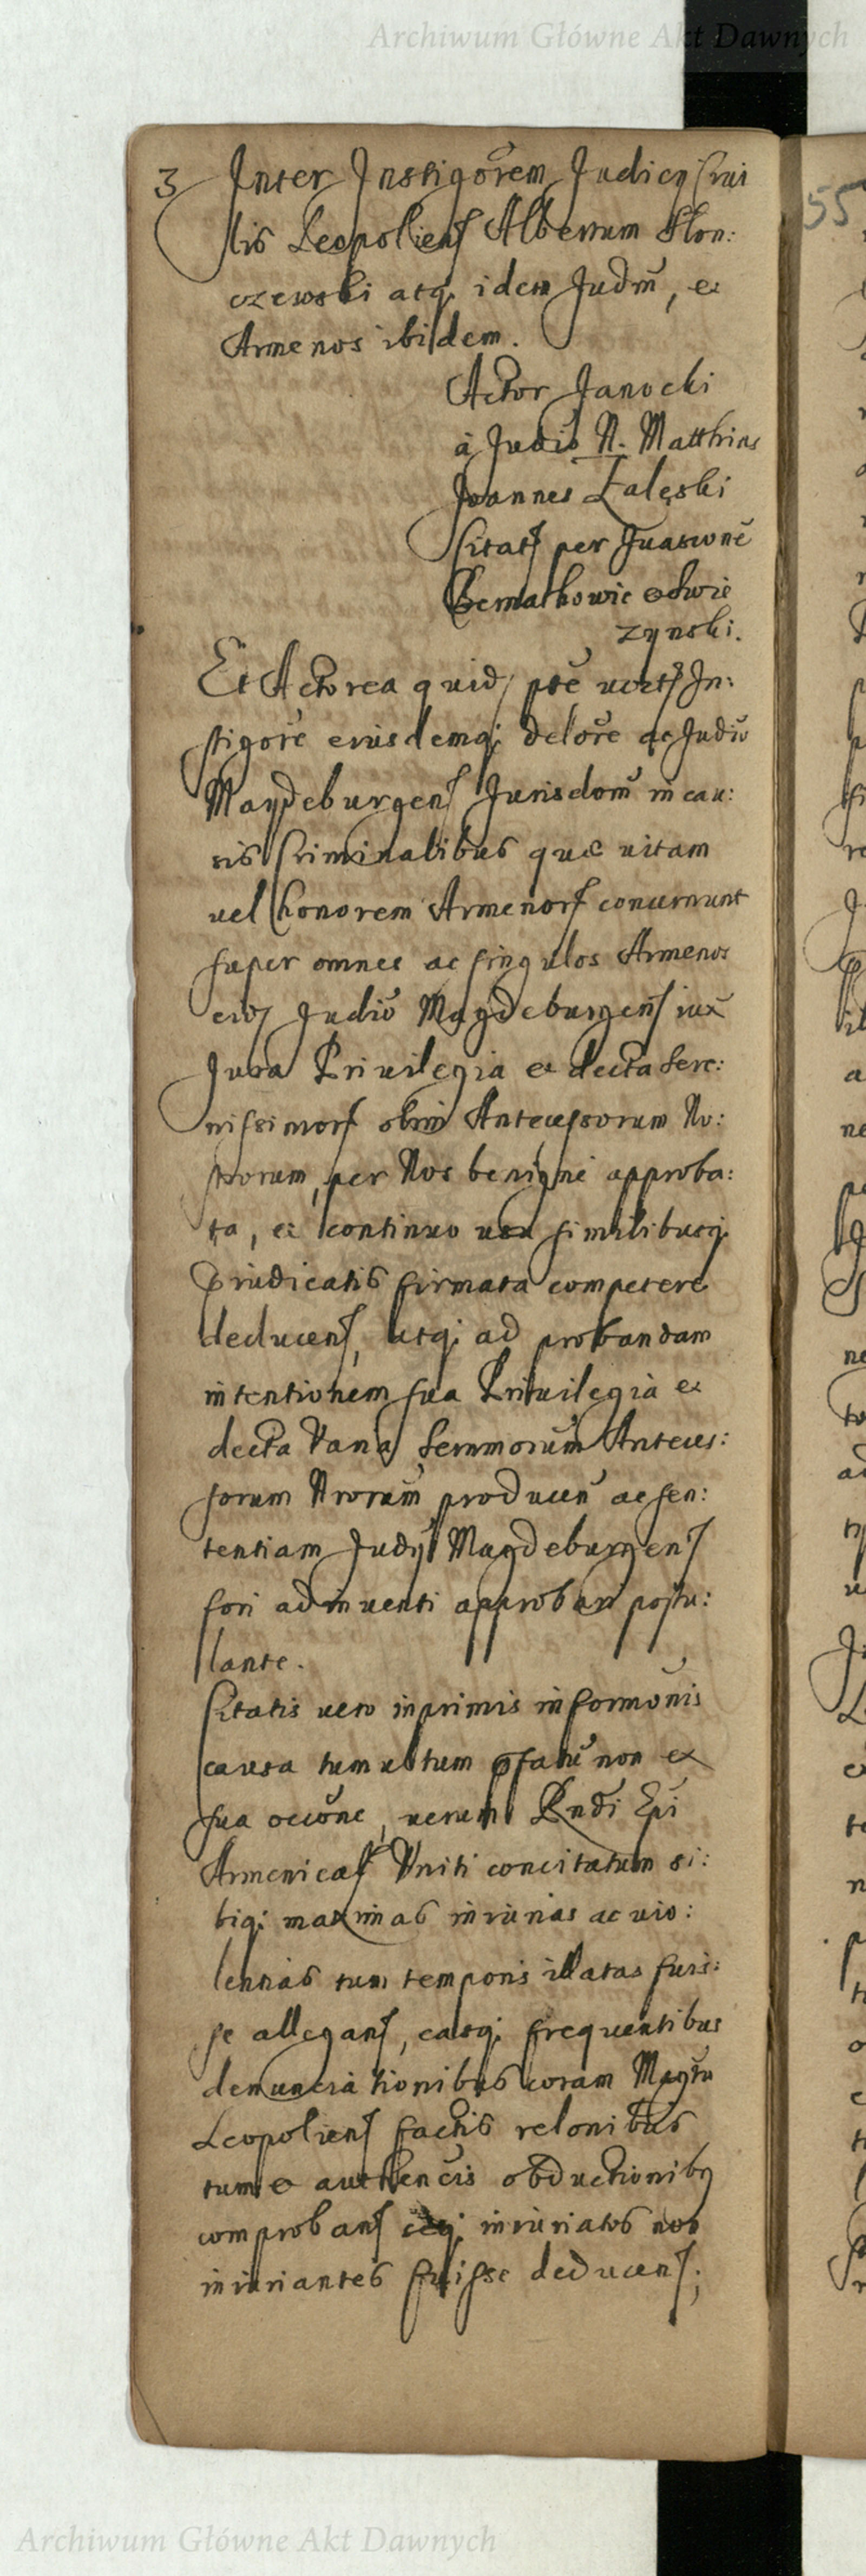 Archiwum Główne Akt Dawnych
3 Inter Instigorem Judicij Civi
lis Leopoliens Albertum Slon:
czewski atq; idem Judm, et
Armenos ibidem.
Actor Janocki
à Judio N. Matthias
Joannes Zaleski
Citats per
Bernatkowic
zynski.
55
Et Actorea quid pte
stigore eiusdemq; delore ac Judio
Maydeburgens Jurisdom in cau:
sis Criminalibus quae uitam
uel honorem Armenors concernunt
super omnes ac singulos Armenos
Judio Magdeburgens iux
Jura Priuilegia et decta Sere:
nissimors olim Antecessorum No:
strorum, per Nos benigne approba:
ta, et continuo usu similibusq;
Priudicatis firmata competere
deducens, utq; ad probandam
intentionem sua Priuilegia et
decta Varia Sermmorum Anteces:
sorum Nrorum producen ac sen:
tentiam Judij Magdeburgens
fori adinuenti approbari postu:
lante.
Citatis uero inprimis informonis
causa tumultum pfatu non ex
sua occone, uerum Rndi Epi
Armenicas Vniti concitatum si:
biq; maximas iniurias ac uio:
lentias tum temporis illatas fuis:
se allegans, easq; frequentibus
denunciationibus coram Magtu
Leopoliens factis relonibus
tum et authencis obductionibq
comprobans iniuriatos non
iniuriantes fuisse deducens;
Archiwum Główne Akt Dawnych